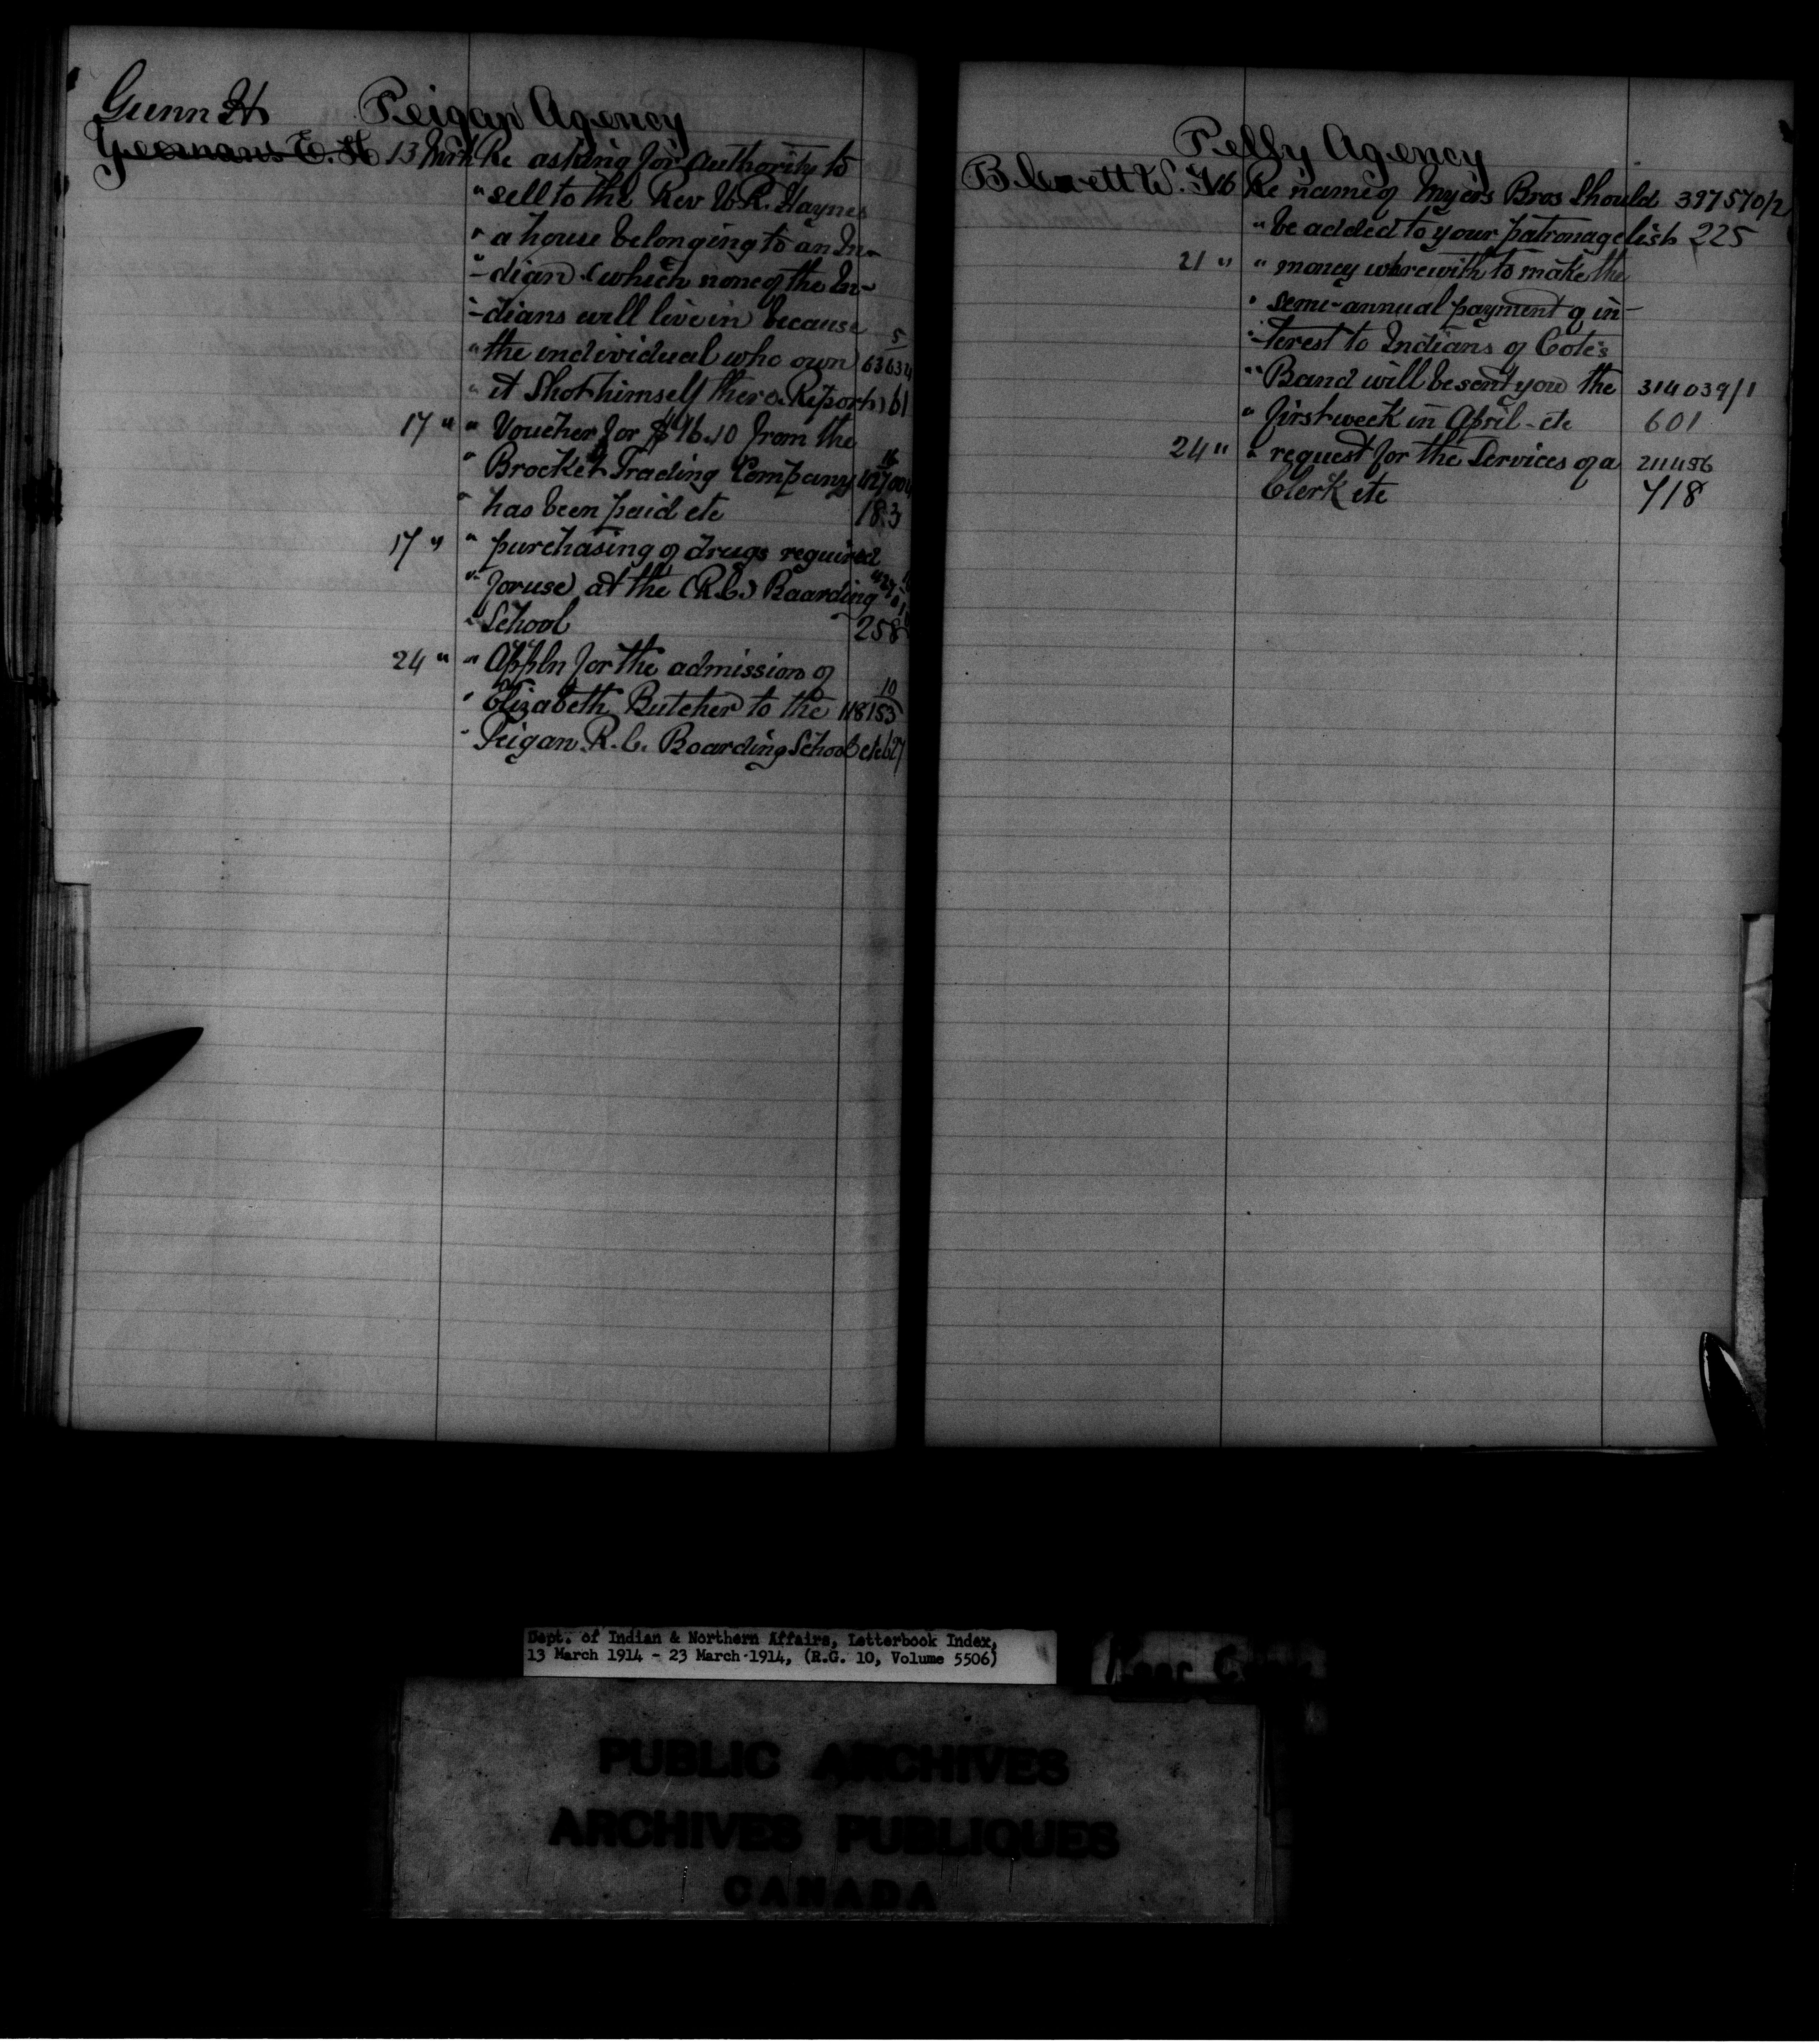 Peigan Agency
Gunn H
Yeomans E. H 13 Mrh Re asking for authority to
" sell to the Rev W.R. Haynes
" a house belonging to an In-
"-dian (which none of the In-
"-dians will live in because 5
" the individual who own 63634
" it Shot himself there. Report) 61
17 " " Voucher for $96.10 from the
" Brocket Trading Company 16
" has been paid etc 183
17 " " purchasing of drugs required
" for use at the (R.C.) Boarding
" School 258
24 " " Appln for the admission of
" Elizabeth Butcher to the 10 118153
" Peigan R.C. Boarding School etc 627
Pelly Agency
W. 16 Re name of Myers Bros Should 397570/2
" be added to your patronage list 225
21 " " money wherewith to make the
" semi-annual payment of in-
"-terest to Indians of Cote's
" Band will be sent you the 314039/1
" first week in April - etc 601
24 " " request for the Services of a 211486
Clerk etc 718
Dept. of Indian & Northern Affairs, Letterbook Index,
13 March 1914 - 23 March 1914, (R.G. 10, Volume 5506)
PUBLIC ARCHIVES
ARCHIVES PUBLIQUES
CANADA